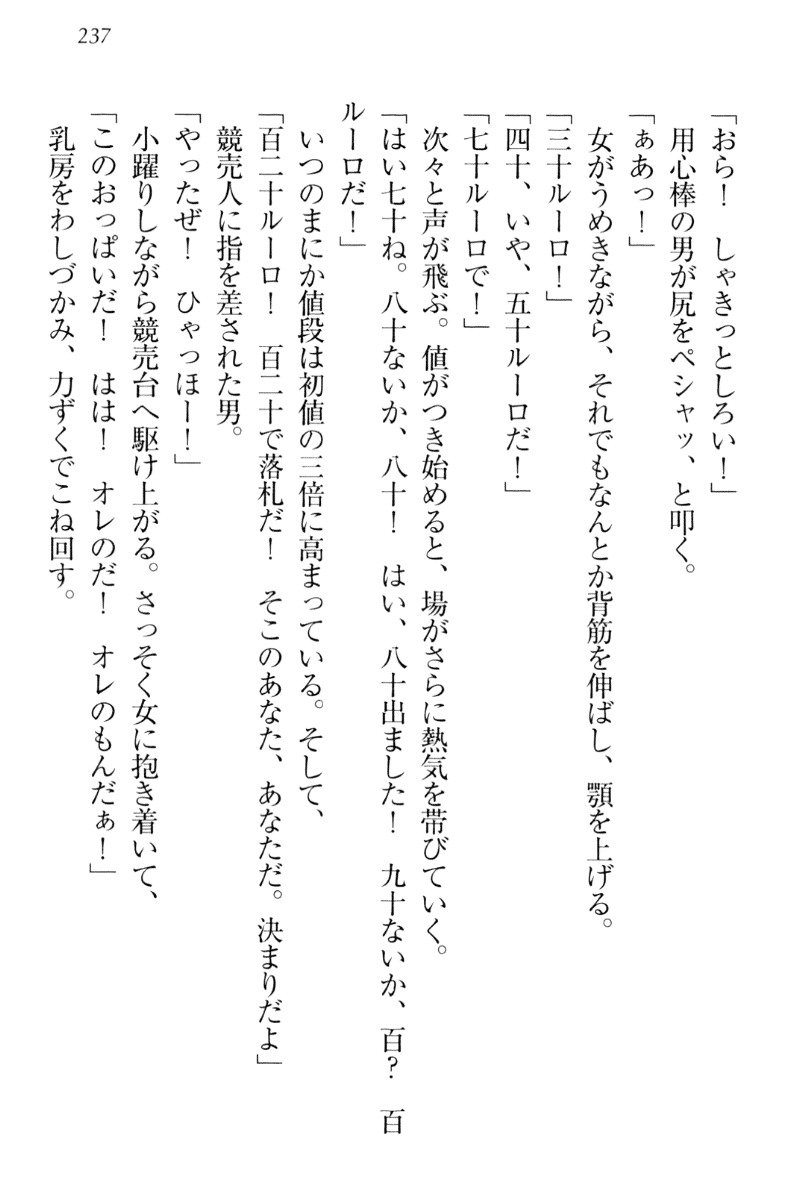 237
「おら！　しゃきっとしろい！」
用心棒の男が尻をペシャッ、と叩く。
「ぁあっ！」
女がうめきながら、それでもなんとか背筋を伸ばし、顎を上げる。
「三十ルーロ！」
「四十、いや、五十ルーロだ！」
「七十ルーロで！」
次々と声が飛ぶ。値がつき始めると、場がさらに熱気を帯びていく。
「はい七十ね。八十ないか、八十！　はい、八十出ました！　九十ないか、百？　百
ルーロだ！」
いつのまにか値段は初値の三倍に高まっている。そして、
「百二十ルーロ！　百二十で落札だ！　そこのあなた、あなただ。決まりだよ」
競売人に指を差された男。
「やったぜ！　ひゃっほー！」
小躍りしながら競売台へ駆け上がる。さっそく女に抱き着いて、
「このおっぱいだ！　はは！　オレのだ！　オレのもんだぁ！」
乳房をわしづかみ、力ずくでこね回す。